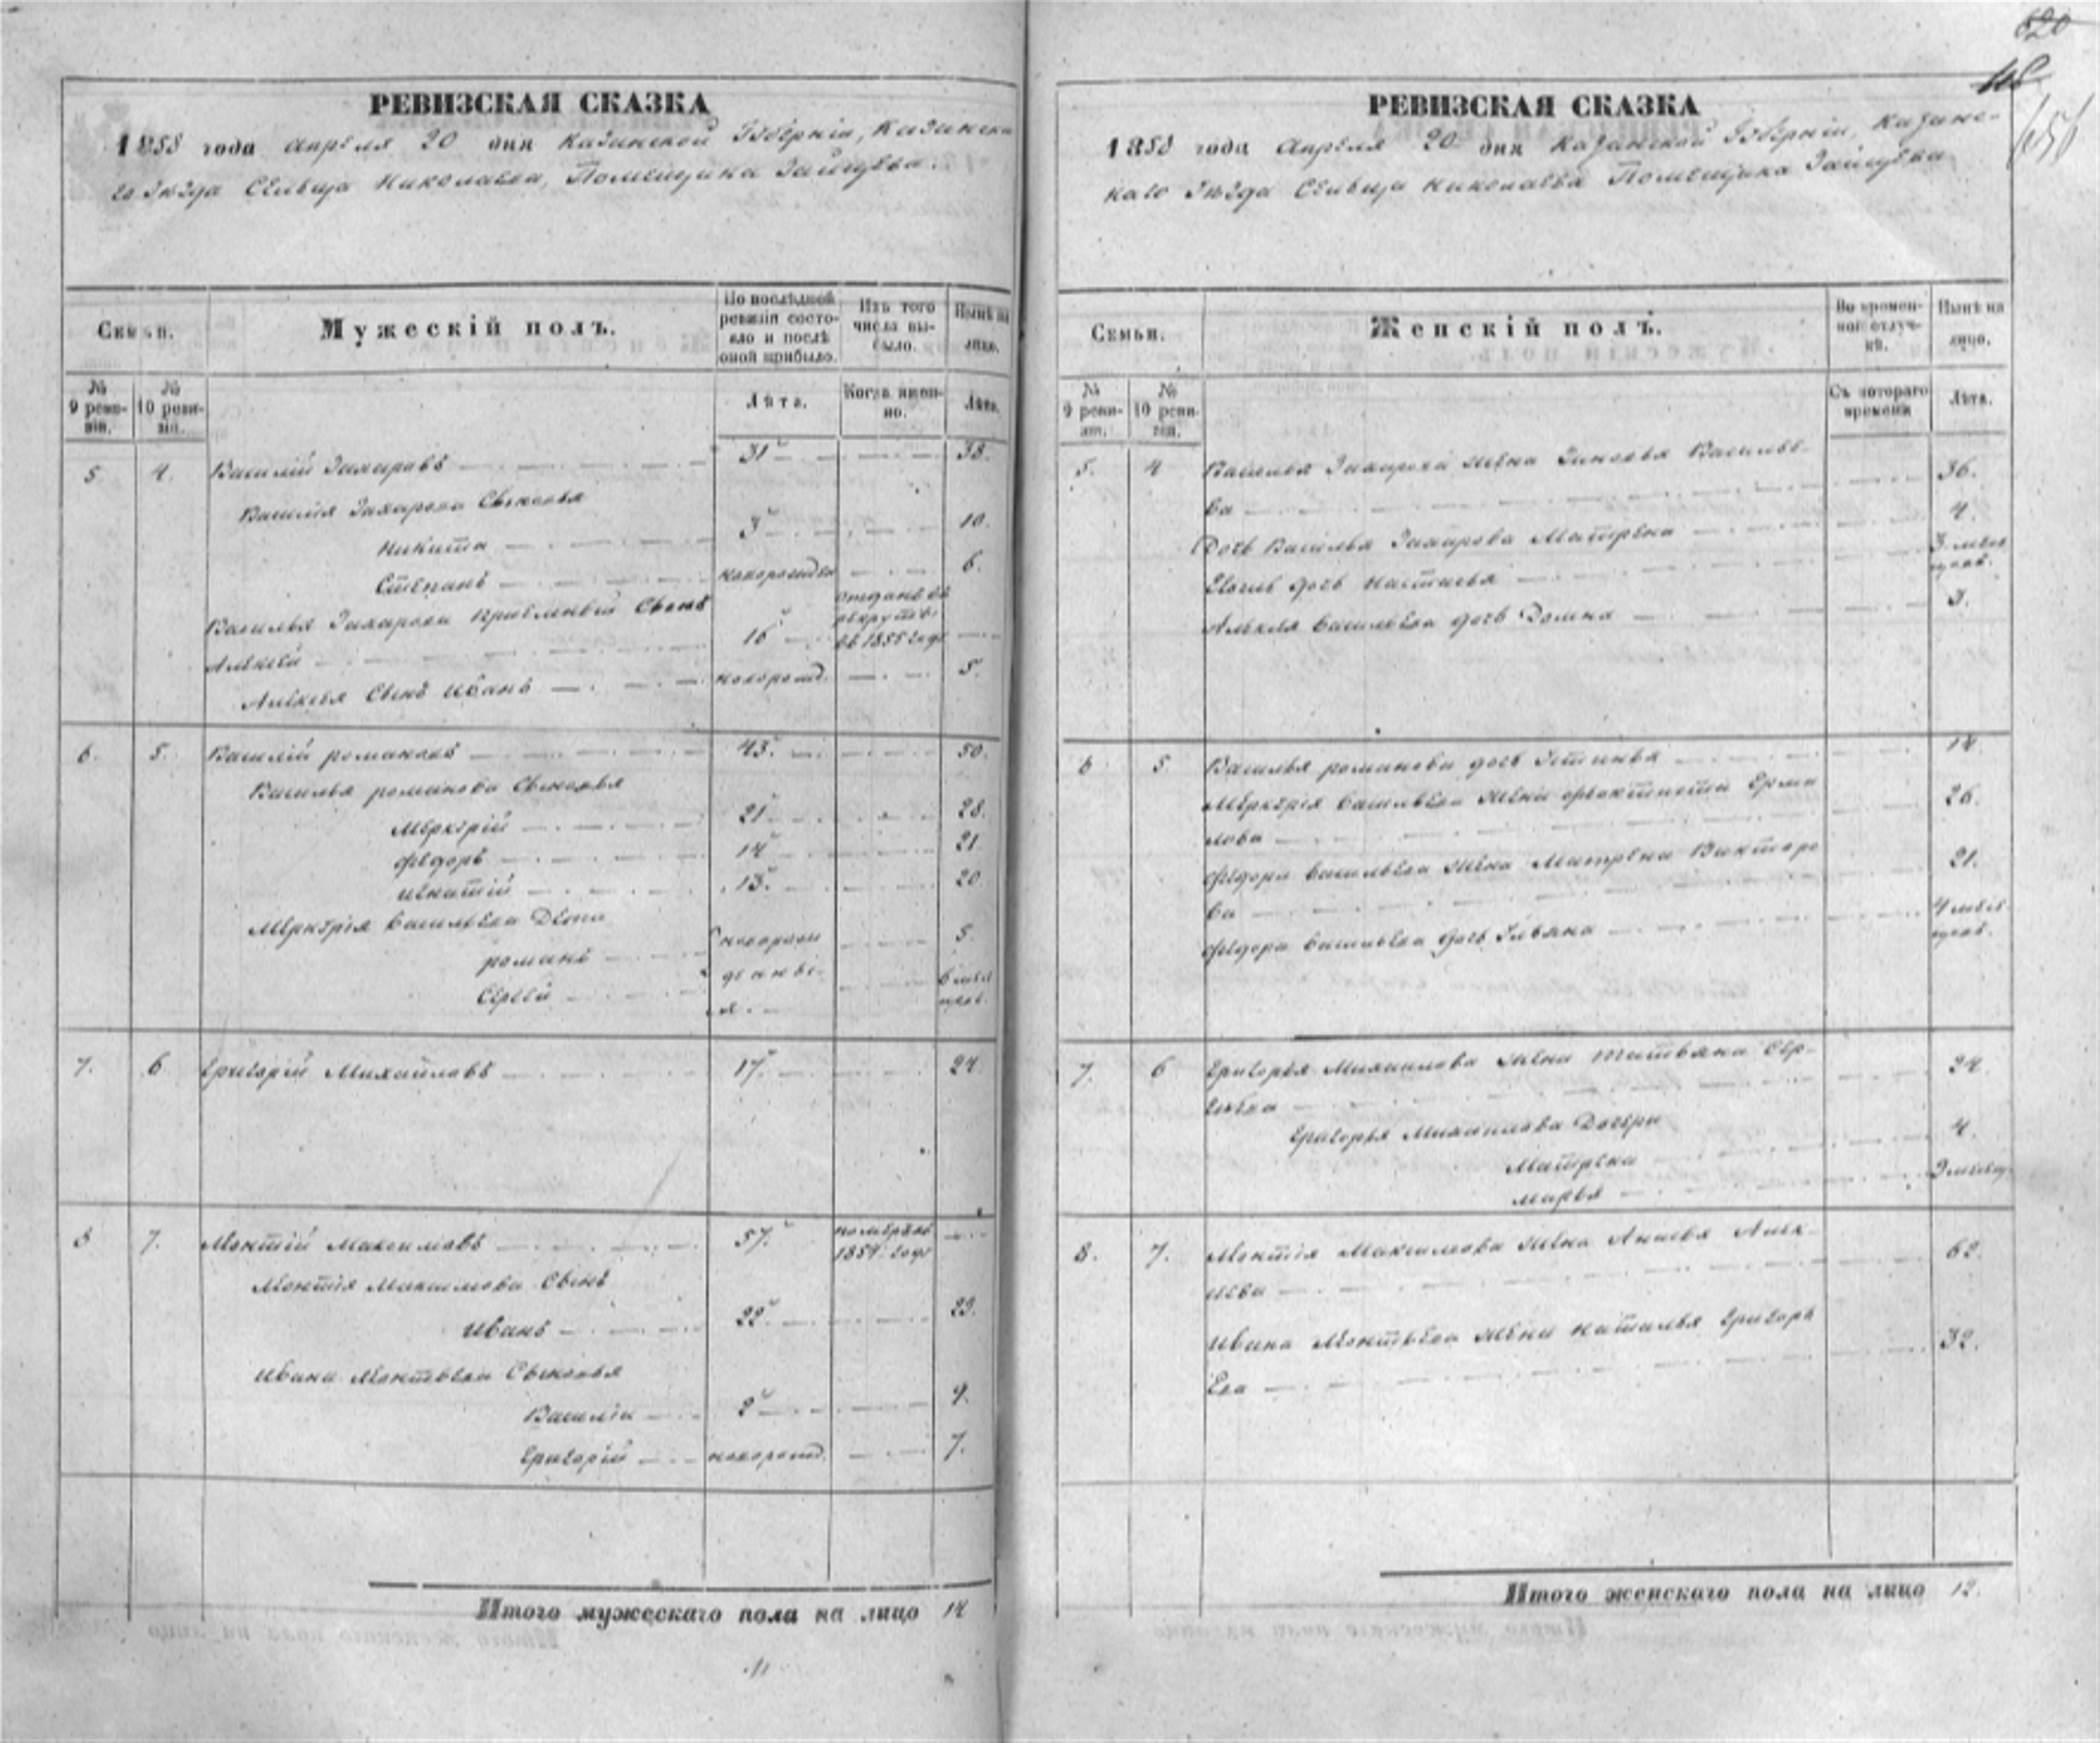 620
РЕВИЗСКАЯ СКАЗКА
1858 года апреля 20 дня Казанской Губерніи, Казанска
го Уезда Сельца Николаева, Помещика Зайцева.
Семьи.
Мужескій полъ.
По послѣдней ревизіи состояло и послѣ оной прибыло.
Изъ того числа выбыло.
Нынѣ на лицо.
№ 9 ревизіи.
№ 10 ревизіи.
Лѣта.
Когда именно.
Лѣта.
5 4. Василій Захаровъ 31 38.
Василья Захарова Сыновья
Никита 3 10.
Степанъ новорожден 6.
Василья Захарова приемный Сынъ отданъ въ рекруты
Алексей 16 въ 1855 году
Алексея Сынъ Иванъ новорожд. 5.
6. 5. Василій романовъ 43. 50.
Василья романова Сыновья
Меркурій 21 28.
Федоръ 14 21
игнатій 13. 20
Меркурія Васильева Дети
романъ новорож 5.
Сергей денные 6 месяцевъ.
7. 6 Григорій Михайловъ 17. 24
8 7. Моктій Максимовъ 57. померъ въ 1854 году
Моктія Максимова Сынъ
Иванъ 22. 29.
Ивана Моктьева Сыновья
Василій 2 9.
Григорій новорожд. 7.
Итого мужескаго пола на лицо 14
РЕВИЗСКАЯ СКАЗКА
1858 года Апреля 20 дня Казанской Губерніи, Казанс-
каго Уезда Сельца Николаева Помещика Зайцева
Семьи.
Женскій полъ.
Во временной отлучкѣ.
Нынѣ на лицо.
№ 9 ревизіи.
№ 10 ревизіи.
Съ котораго времени
Лѣта.
5. 4 Василья Захарова жена Зиновья Василье-
ва 36.
Дочь Василья Захарова Матрена 4.
Евоже дочь Настасья 3 месяцевъ.
Алексея Васильева дочь Домна 3.
6 5 Василья романова дочь Устинья 14
Меркурія Васильева жена Фоктиста Ерми
лова 26.
Федора Васильева жена Матрена Викторо
ва 21.
Федора Васильева дочь Ульяна 4 месяцевъ.
7. 6 Григорья Михайлова жена татьяна Сер-
геева 24
Григорья Михайлова Дочери
Матрена 4.
марья
8. 7. Моктія Максимова жена Анисья Алек-
иева 62.
Ивана Моктьева жена наталья Григорь
ева 32.
Итого женскаго пола на лицо 12.